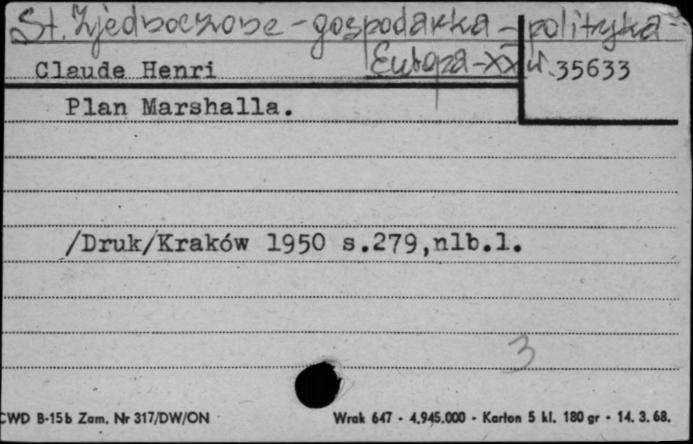 St. Zjednoczone - gospodarka - polityka -
Europa - XX w.
Claude Henri
35633
Plan Marshalla.
/Druk/Kraków 1950 s.279,nlb.1.
3
CWD B-15b Zam. Nr 317/DW/ON
Wrak 647 - 4.945.000 - Karton 5 kl. 180 gr - 14. 3. 68.